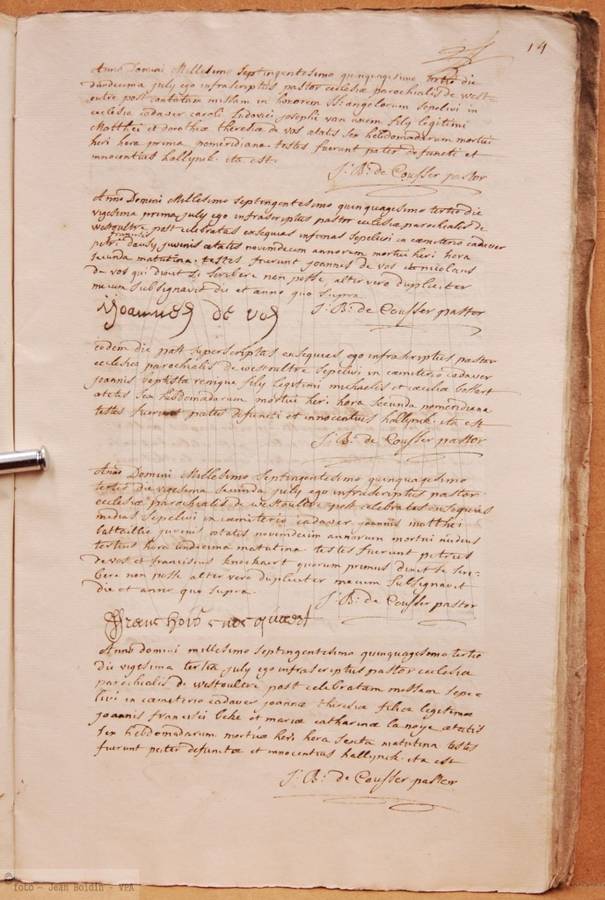 14
Anno Domini Millesimo Septingentesimo quinquagesimo tertio die
duodecima july ego infrascriptus pastor ecclesiæ parochialis de west-
outre post cantatam missam in honorem SS: angelorum sepelivi in
ecclesia cadaver caroli Ludovici josephi van filij legitimi
Matthei et dorotheæ theresiæ de vos ætatis sex hebdomadarum mortui
heri hora prima pomeridiana testes fuerunt pater defuncti et
innocentius hallynck. ita est.
J: B: de Cousser pastor
Anno Domini Millesimo Septingentesimo quinquagesimo tertio die
vigesima prima july ego infrascriptus pastor ecclesiæ parochialis de
westoultre post celebratas exequias infimas sepelivi in cæmeterio cadaver
petri francisci juvenis ætatis novemdecim annorum mortui heri hora
secunda matutina: testes fuerunt joannes de vos et nicolaus
de vos qui dixit se scribere non posse, alter vero dupliciter
mecum subsignavit die et anno quo supra.
Joannes de vos J: B: de Cousser pastor
eodem die post superscriptas exequias ego infrascriptus pastor
ecclesiæ parochialis de westoultre sepelivi in cæmeterio cadaver
joannis baptistæ filij legitimi michaelis et cæciliæ
ætatis sex hebdomadarum mortui heri hora secunda pomeridiana
testes fuerunt pater defuncti et innocentius hallynck. ita est
J: B: de Cousser pastor
Anno Domini Millesimo Septingentesimo quinquagesimo
tertio die vigesima secunda july ego infrascriptus pastor
ecclesiæ parochialis de westoultre post celebratas exequias
medias sepelivi in cæmeterio cadaver joannis matthei
battaillie juvenis ætatis novemdecim annorum mortui nudius
tertius hora undecima matutina testes fuerunt petrus
de vos et franciscus knockaert quorum primus dixit se scri-
bere non posse alter vero dupliciter mecum subsignavit
die et anno quo supra.
J: B: de Cousser pastor
Anno domini millesimo septingentesimo quinquagesimo tertio
die vigesima tertia july ego infrascriptus pastor ecclesiæ
parochialis de westoultre post celebratam missam sepe-
livi in cæmeterio cadaver joannæ theresiæ filiæ legitimæ
joannis francisci beke et mariæ catharinæ la noye ætatis
sex hebdomadarum mortuæ heri hora sexta matutina testes
fuerunt pater defunctæ et innocentius hallynck. ita est
J: B: de Cousser pastor
© foto - Jean Boldin - VPA